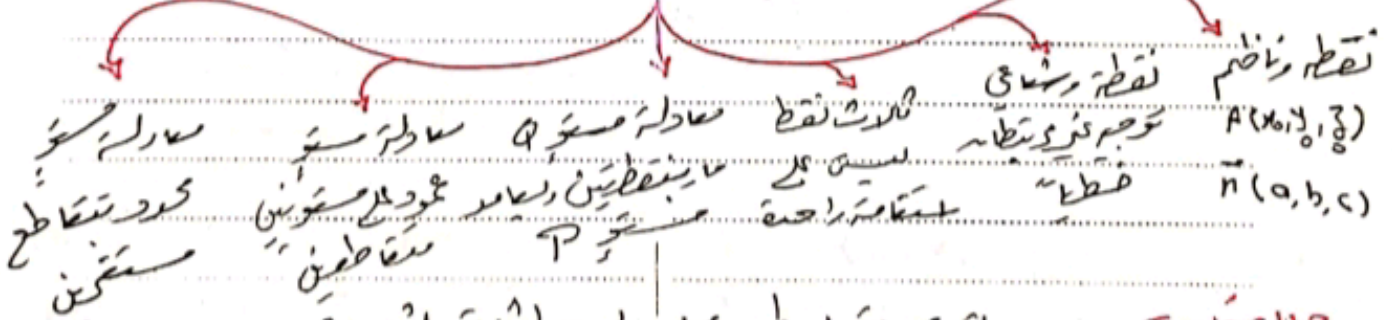 نقطة وناظم
A(x₀, y₀, z₀)
n⃗ (a, b, c)
نقطة وشعاعي
توجيه غير مرتبطان
خطياً
ثلاث نقط
ليست على
استقامة واحدة
معادلة مستوٍ Q
مار بنقطتين ويعامد
مستوٍ P
معادلة مستوٍ
عمود على مستويين
متقاطعين
معادلة مستوٍ
محدد بتقاطع
مستقيمين